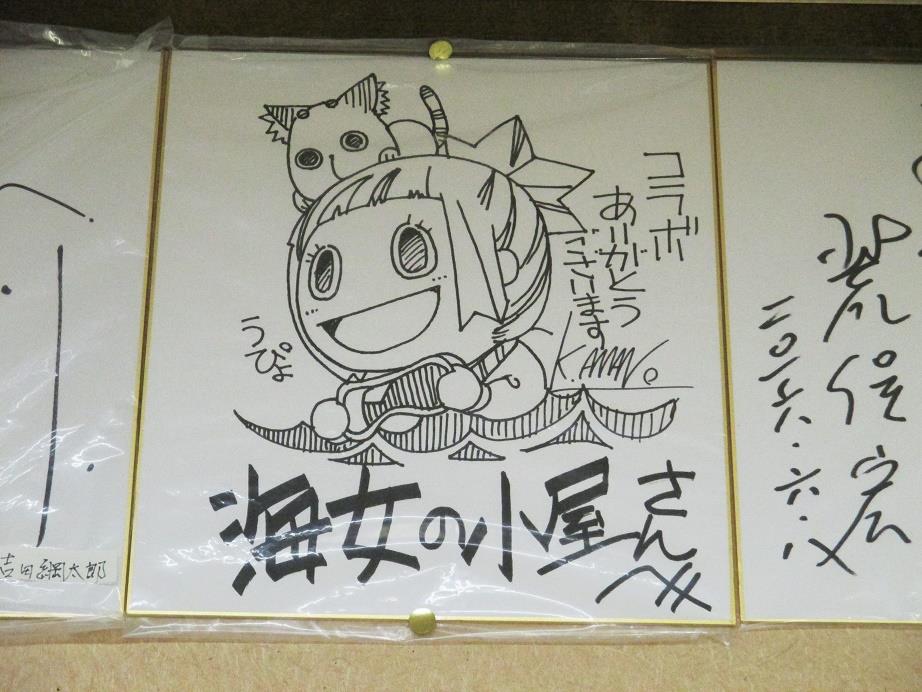 コラボ
ありがとう
ございます
K.AMAN.
うぴょ
海女の小屋さんへ
吉田綱太郎
荒俣宏
二〇一六.六.八